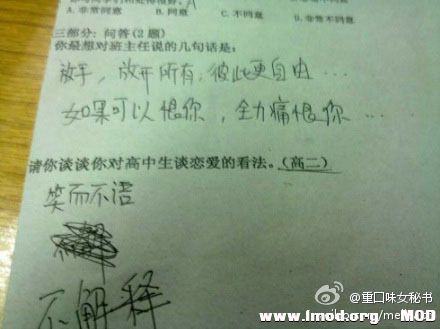 A. 非常同意 B. 同意 C. 不同意 D. 非常不同意
三部分: 问答(2题)
你最想对班主任说的几句话是:
放手，放开所有，彼此更自由…
如果可以恨你，全力痛恨你…
请你谈谈你对高中生谈恋爱的看法。(高二)
笑而不语
不解释
@重口味女秘书
www.lmod.org MOD